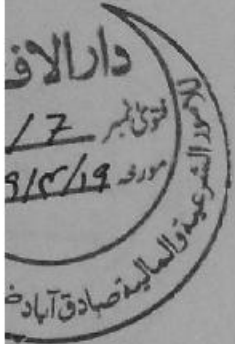 دارالاف
فتویٰ نمبر 7/
مورخہ ۱۹/۳/۹
الامور الشرعیة والمالیة صادق آباد ض